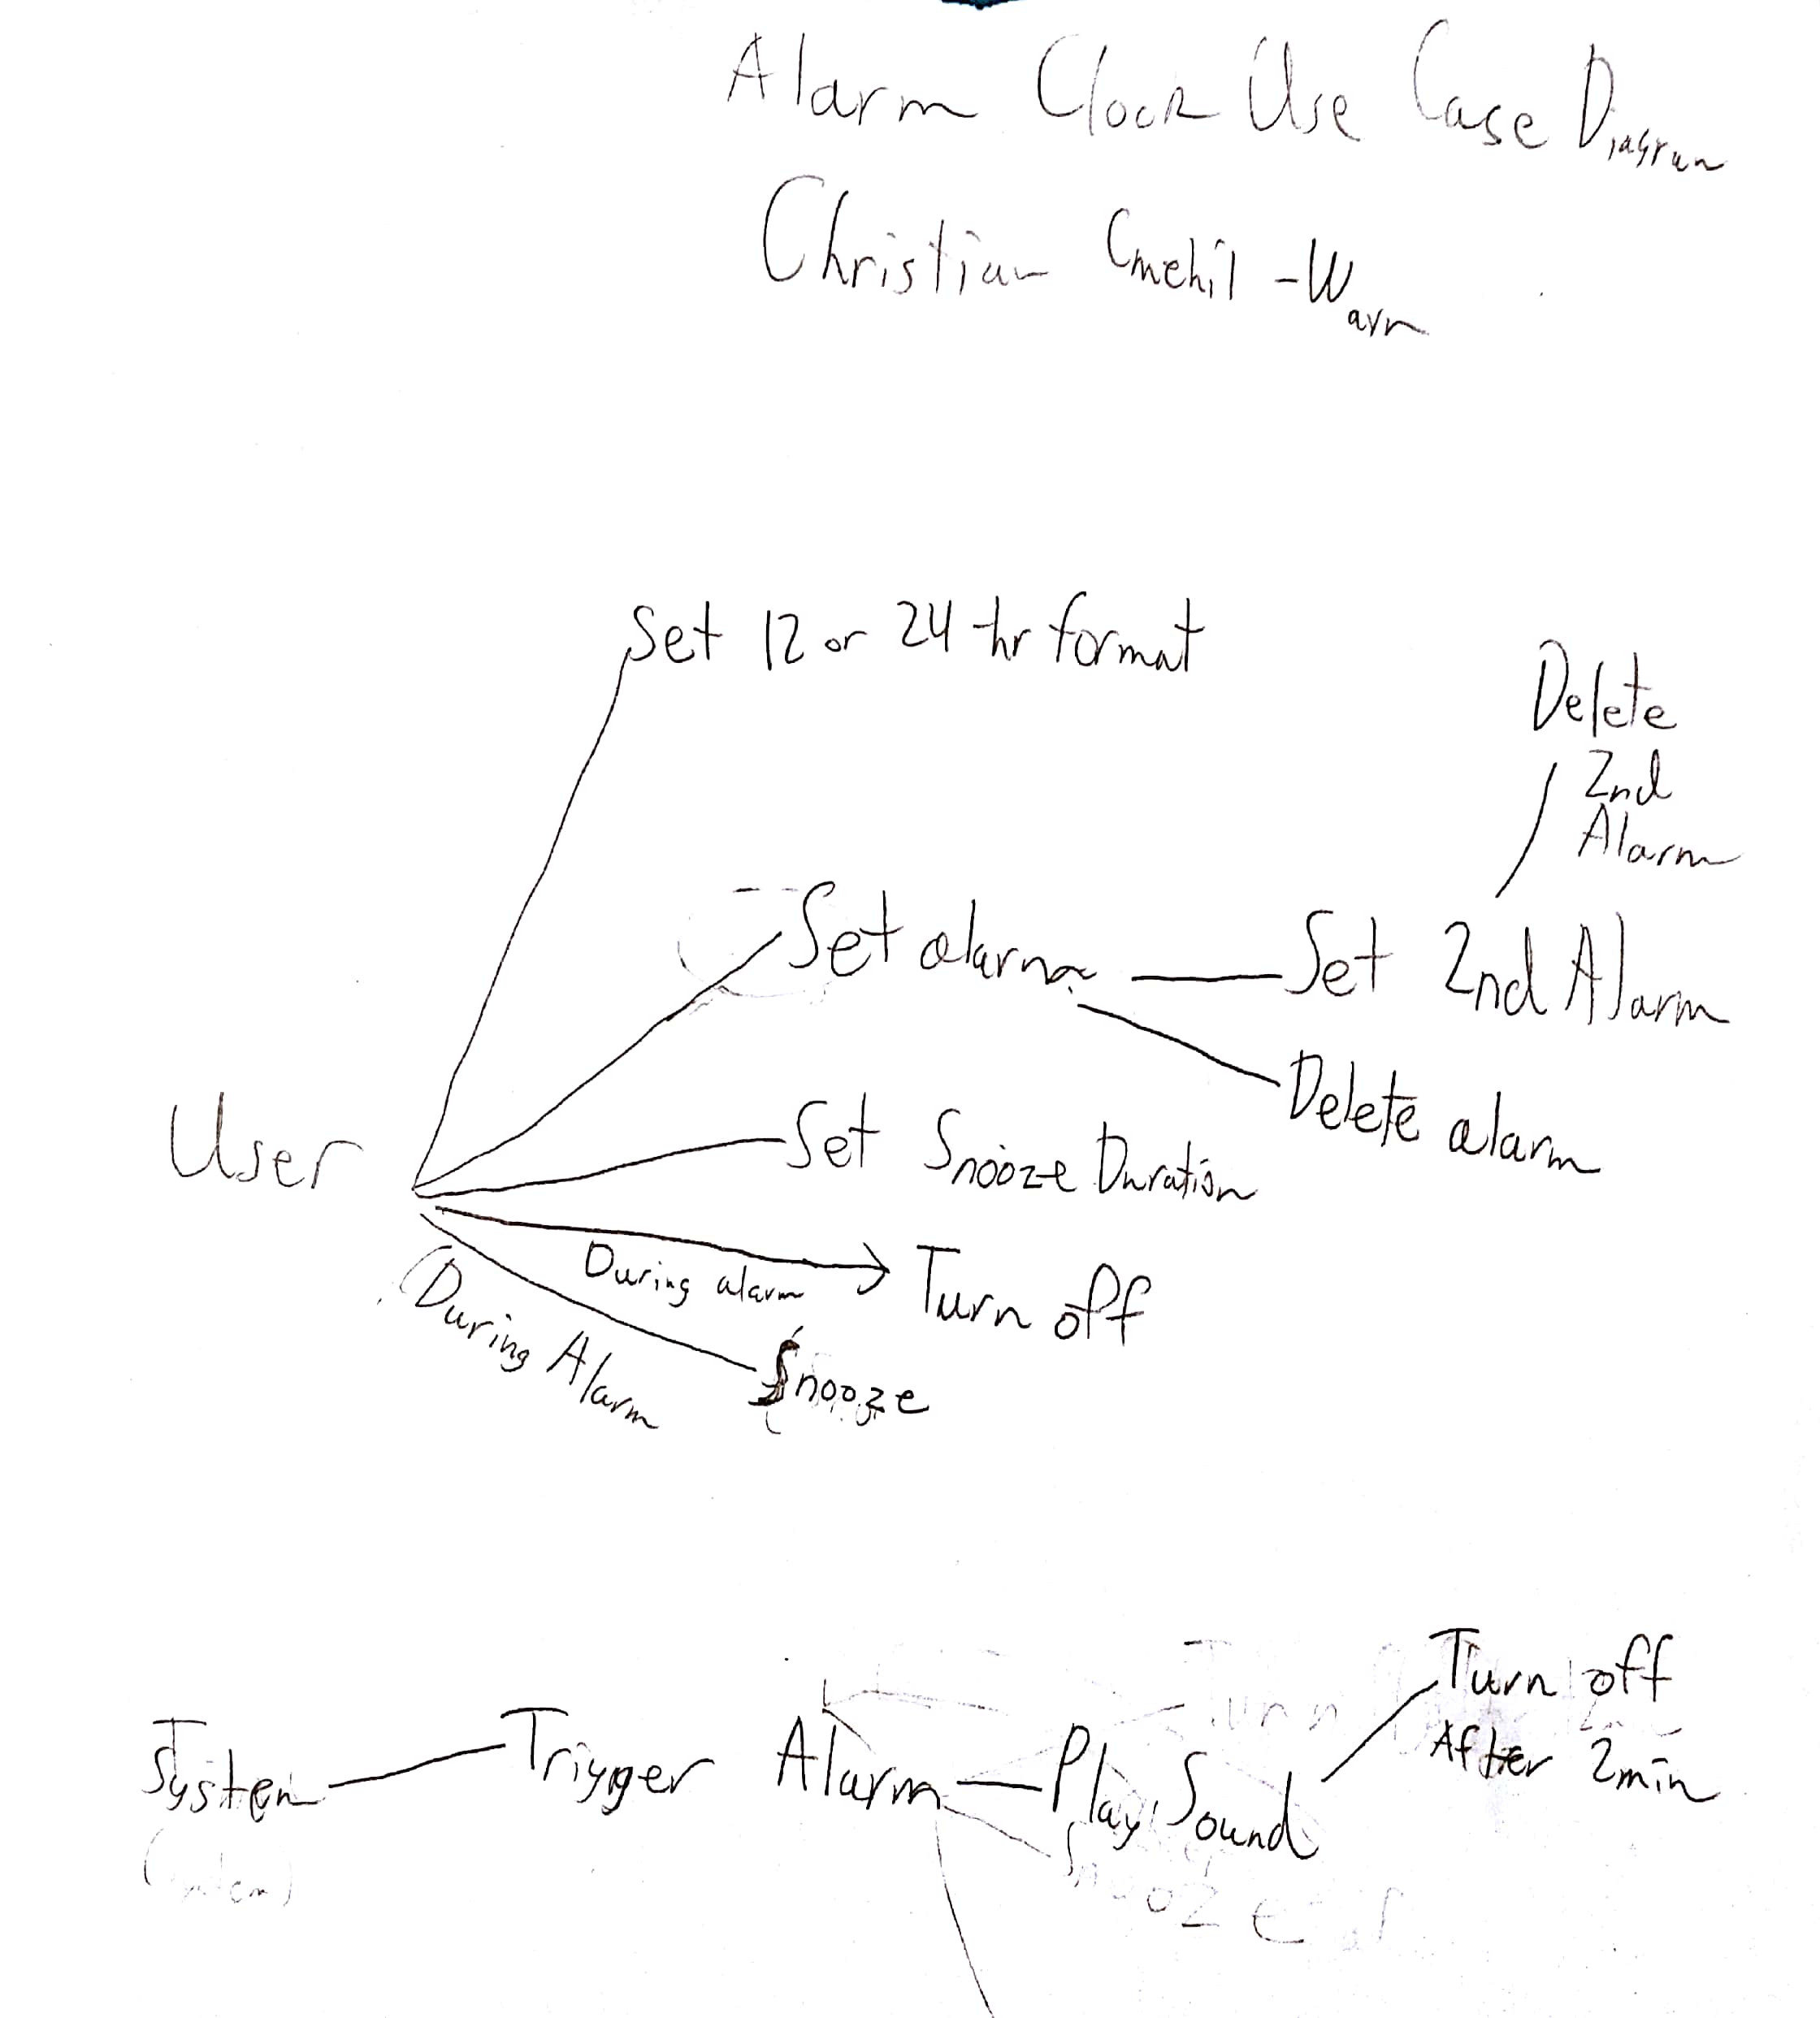 Alarm Clock Use Case Diagram
Christian Cmehil-Warn
Set 12 or 24-hr format
Delete
2nd
Alarm
Set alarm
Set 2nd Alarm
Delete alarm
User
Set Snooze Duration
During alarm
Turn off
During Alarm
Snooze
Turn off
After 2min
System
Trigger Alarm
Play Sound
(system)
Snooze